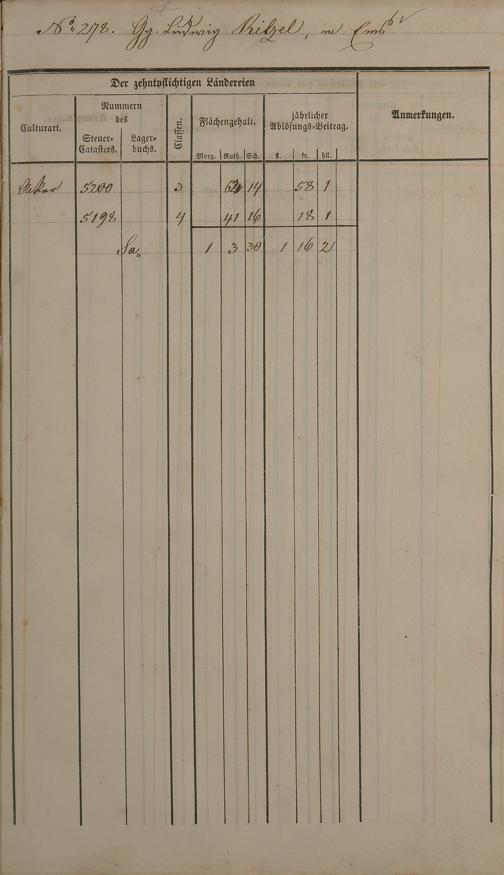 No. 278. Gg. Ludwig Ritzel, in Ems
Der zehntpflichtigen Ländereien
Culturart.
Nummern des
Steuer-Catasters.
Lager-buchs.
Classen.
Flächengehalt.
Morg. Ruth. Sch.
jährlicher Ablösungs-Beitrag.
fl. kr. hll.
Anmerkungen.
Aecker 5200 3 14 58 1
5198 4 41 16 18 1
Sa. 1 3 30 1 16 2